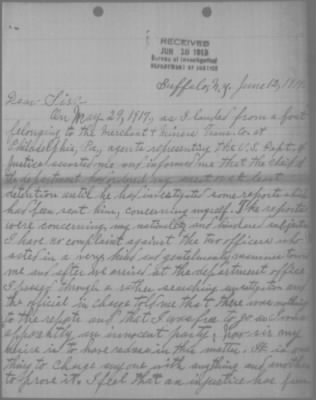 RECEIVED
JUN 16 1919
Bureau of Investigation
DEPARTMENT OF JUSTICE
Buffalo, N.Y. June 12, 1919.
Dear Sir:
On May 29, 1919, as I landed from a boat
belonging to the Merchant & Miners Trans. Co. at
Philadelphia, Pa, agents representing the U.S. Dept. of
Justice accosted me and informed me that the chief of
the department had ordered my arrest or at least
detention until he had investigated some reports which
had been sent him, concerning myself. The reports
were concerning my nationality and kindred subjects.
I have no complaint against the two officers who
acted in a very kind and gentlemanly manner toward
me and after we arrived at the department office
I passed through a rather searching investigation and
the official in charge told me that there was nothing
to the reports and that I was free to go as I was
apparently an innocent party; now sir my
desire is to have redress in this matter. It is one
thing to charge anyone with anything and another
to prove it. I feel that an injustice has been